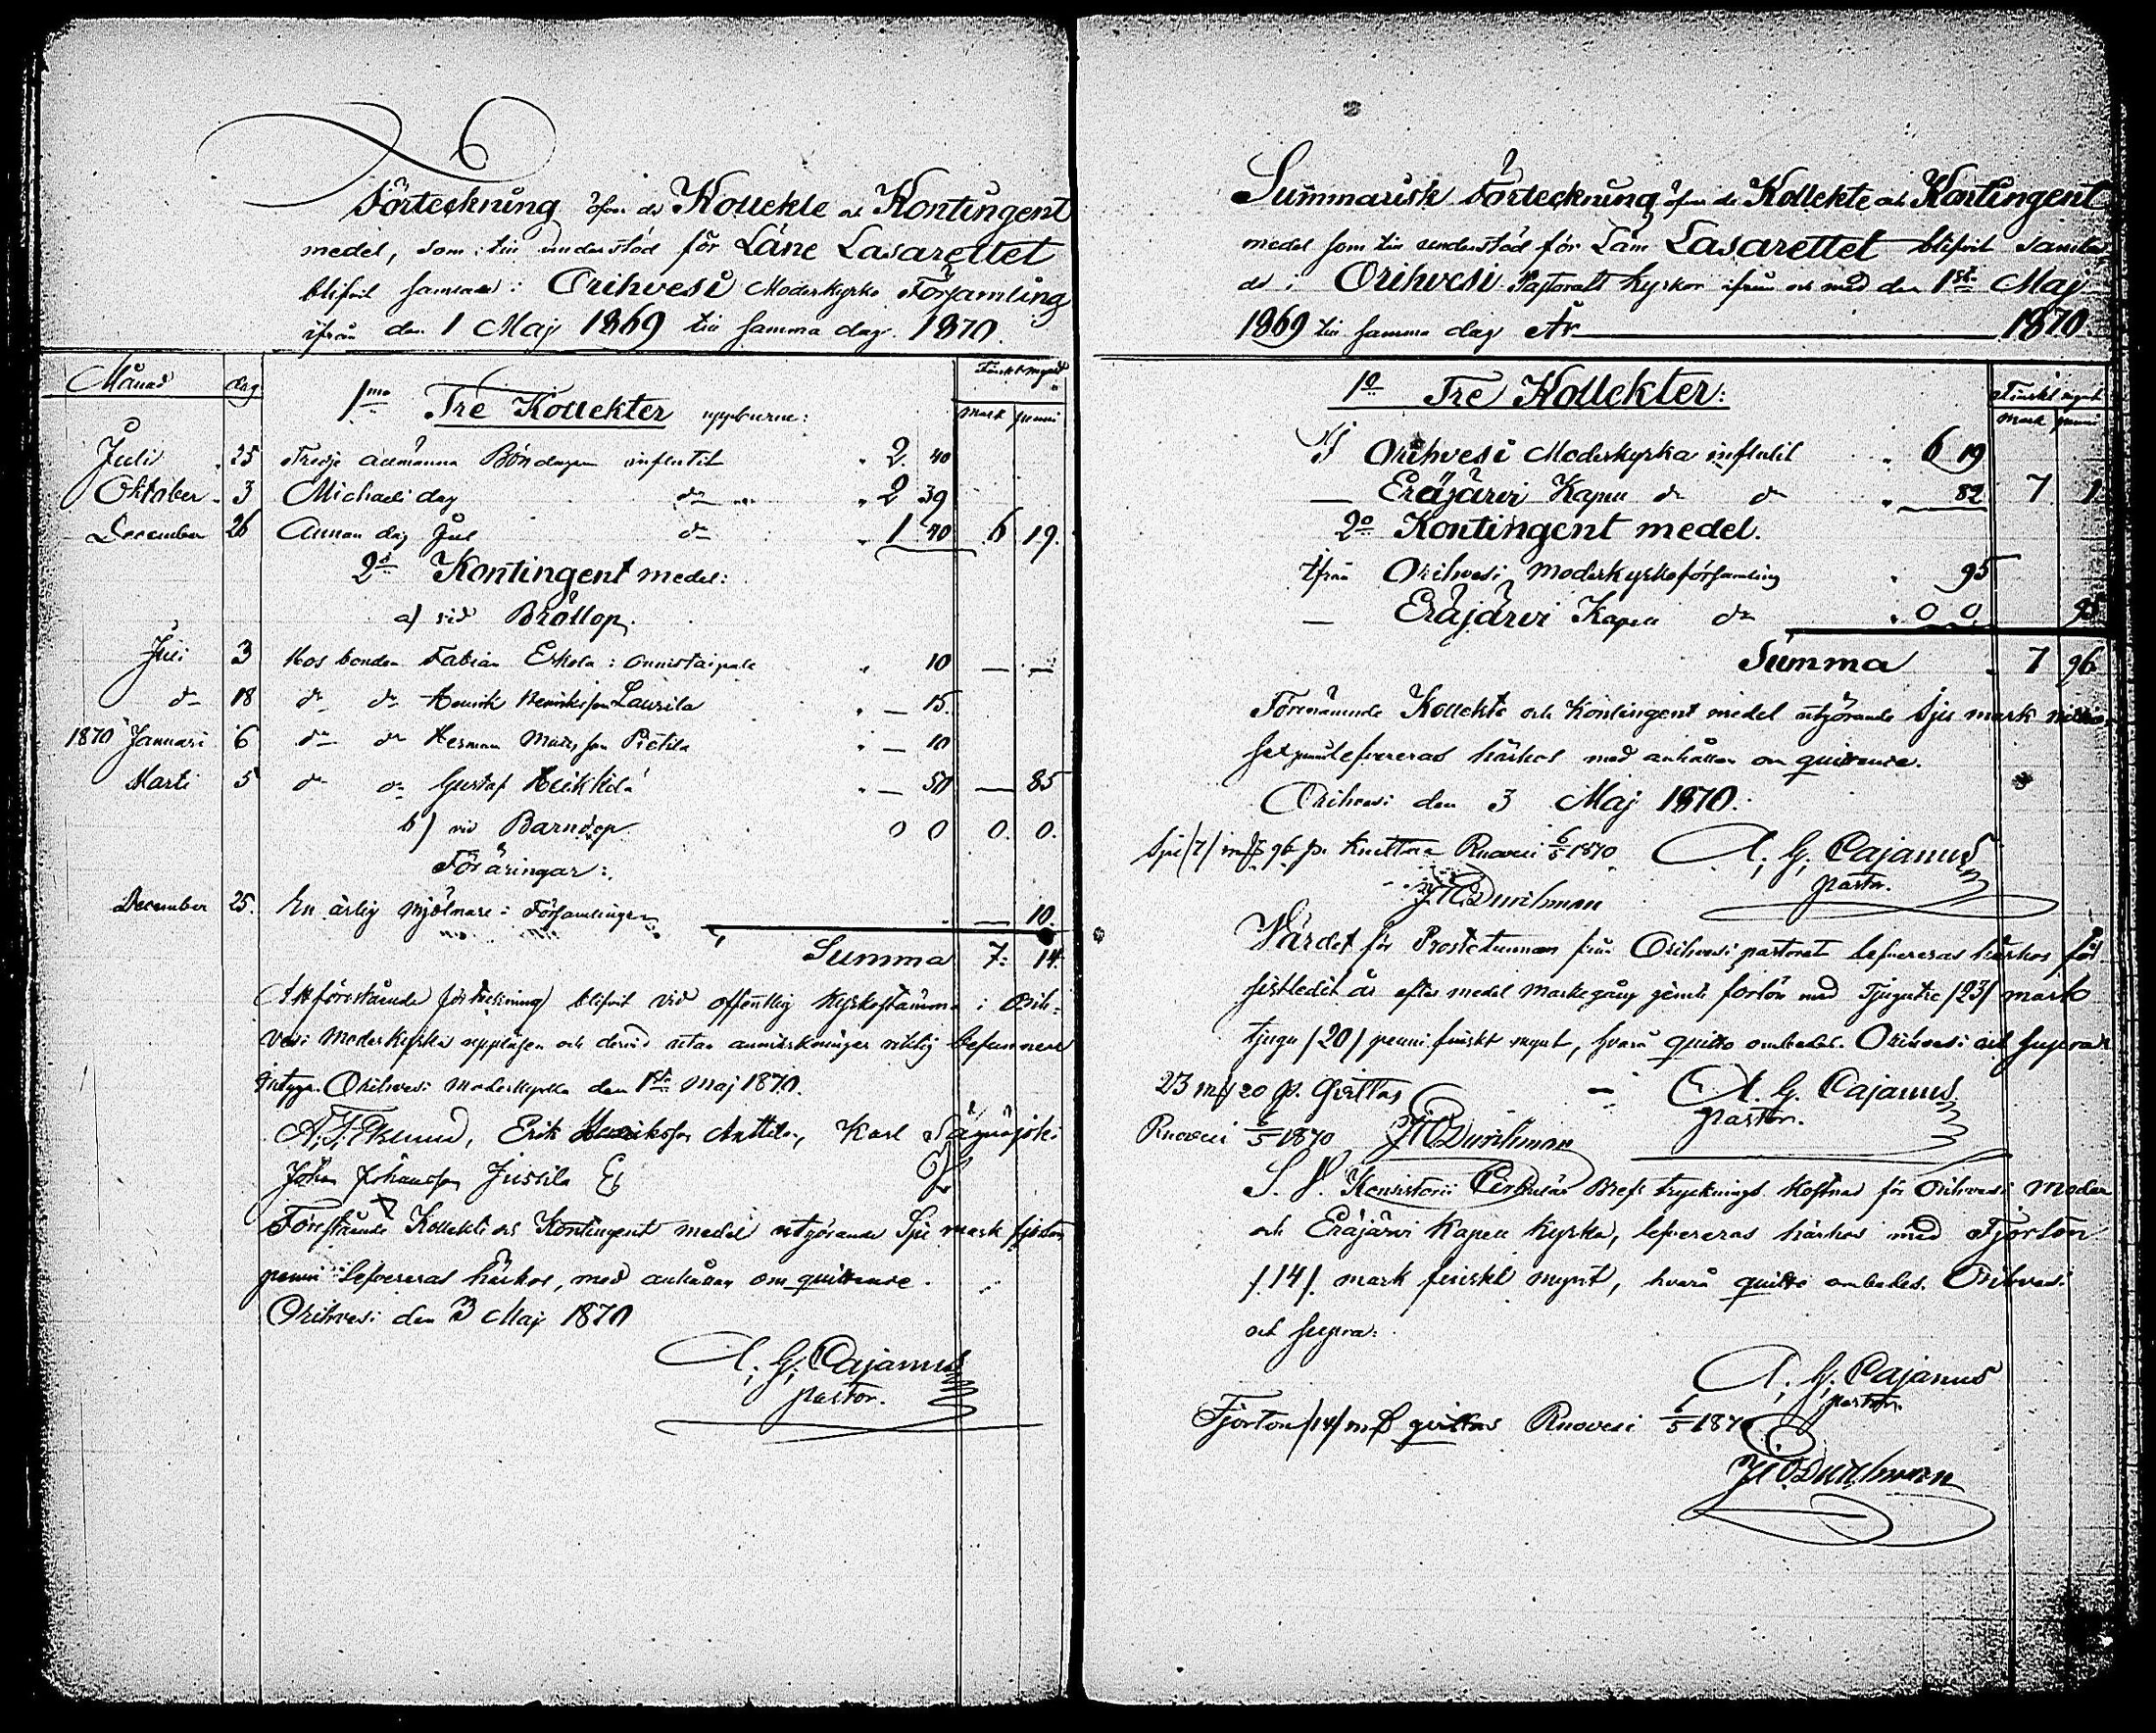 Förteckning öfver de Kollekte och Kontingent
medel, som till understöd för Läne Lasarettet
blifvit samlade i Orihvesi Moderkyrko Församling
ifrån den 1 Maj 1869 till samma dag 1870.
Månad dag Finskt mynt
1mo Tre Kollekter uppburne: Mark penni
Juli 25 Tredje allmänna Böndagen influtit " 2. 40
Oktober 3 Michaeli dag do " 2 39
December 26 Annan dag Jul do " 1 40 6 19.
2do Kontingent medel:
a) vid Bröllop.
Juli 3 Hos bonden Fabian Erkola i Onnistaipale " 10 — —
do 18 do do Henrik Henriksson Laurila " — 15.
1870 Januari 6 do do Herman Mattsson Pietilä " — 10
Marti 5 do do Gustaf Heikkilä " — 50 — 85
b) vid Barndop 0 0 0. 0.
Föräringar:
December 25. En ärlig mjölnare i Församlingen — 10.
Summa 7: 14.
Att förestående förteckning blifvit vid offentlig Kyrkostämma i Orih-
vesi Moderkyrka uppläsen och dervid utan anmärkningar riktig befunnen
intyga. Orihvesi Moderkyrka den 1sta Maj 1870.
A. F. Eklund, Erik Henriksson Anttila, Karl
Johan Johansson Jussila
Förestående Kollekt och Kontingent medel utgörande Sju mark fjorton
penni lefvereras härhos, med anhållan om quittence.
Orihvesi den 3 Maj 1870
A. G. Cajanus
pastor.
Summarisk Förteckning öfver de Kollekte och Kontingent
medel som till understöd för Läns Lasarettet blifvit samla-
de i Orihvesi Pastorats Kyrkor ifrån och med den 1sta Maj
1869 till samma dag År 1870.
1o Tre Kollekter: Finskt mynt
Mark penni
I Orihvesi Moderkyrka influtit " 6 19
— Eräjärvi Kapell do do " 82 7 1
2o Kontingent medel.
Ifrån Orihvesi Moderkyrkoförsamling " 95
— Eräjärvi Kapell do " 0 0 95
Summa 7 96
Förenämnde Kollekte och Kontingent medel utgörande Sju mark nittio
sex penni lefvereras härhos med anhållan om quittence.
Orihvesi den 3 Maj 1870.
Sju /7/ mf 96 p. kvitteras Ruovesi 6/5 1870 A. G. Cajanus
pastor.
Durchman
Värdet för Prostetunnan från Orihvesi pastorat lefvereras härhos för
sistledit år efter medel Markegång jemte forlön med Tjugutre /23/ mark
tjugu /20/ penni finskt mynt, hvarå quitto ombedes. Orihvesi ut supra
23 mf 20 p. qvittas A. G. Cajanus
pastor.
Ruovesi 6/5 1870 Durchman
S. V. Konsistorii Cirkulär Brefs trycknings kostnad för Orihvesi Moder
och Eräjärvi Kapell Kyrka, lefvereras härhos med Fjorton
/14/ mark finskt mynt, hvarå quitto ombedes. Orihvesi
ut supra.
A. G. Cajanus
pastor.
Fjorton /14/ mf qvittas Ruovesi 6/5 187
Durchman